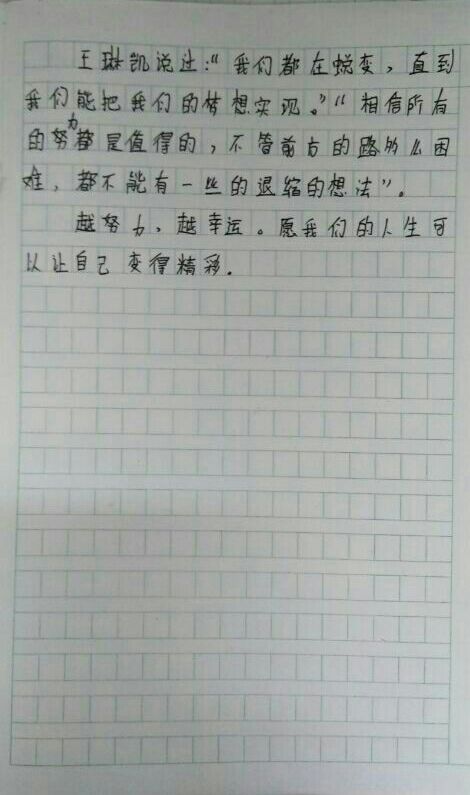 王琳凯说过:“我们都在蜕变，直到
我们能把我们的梦想实现。”“相信所有
的努力都是值得的，不管前方的路多么困
难，都不能有一丝的退缩的想法”。
越努力，越幸运。愿我们的人生可
以让自己变得精彩.